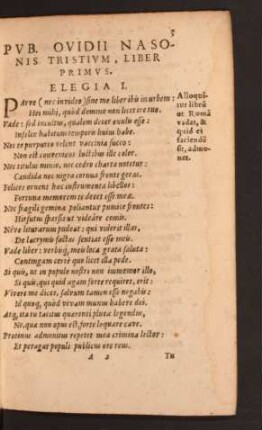 5
PVB. OVIDII NASO-
NIS TRISTIVM, LIBER
PRIMVS.
ELEGIA I.
PArue (nec inuideo) sine me liber ibis in urbem:
Hei mihi, quòd domino non licet ire tuo.
Vade: sed incultus, qualem decet exulis esse:
Infelix habitum temporis huius habe.
Nec te purpureo uelent vaccinia fucco:
Non est conueniens luctibus ille color.
Nec titulus minio, nec cedro charta notetur:
Candida nec nigra cornua fronte geras.
Felices ornent haec instrumenta libellos:
Fortunae memorem te decet esse meae.
Nec fragili geminae poliantur pumice frontes:
Hirsutus sparsis ut videâre comis.
Neve liturarum pudeat: qui viderit illas,
De lacrymis factas sentiat esse meis.
Vade liber: verbisq́; meis loca grata saluta:
Contingam certè quo licet illa pede.
Si quis, ut in populo nostri non immemor illo,
Si quis, qui quid agam forte requirat, erit:
Vivere me dices, saluum tamen esse negabis:
Id quoq, quòd vivam munus habere dei.
Atq, ita tu tacitus quaerenti plura legendus,
Ne, quae non opus est, forte loquare cave.
Protinus admonitus repetet mea crimina lector:
Et peragar populi publicus ore reus.
A 3
Tu
Alloquitur
librũ
ut Romã
vadat, &
quid ei
faciendũ
sit, admonet.